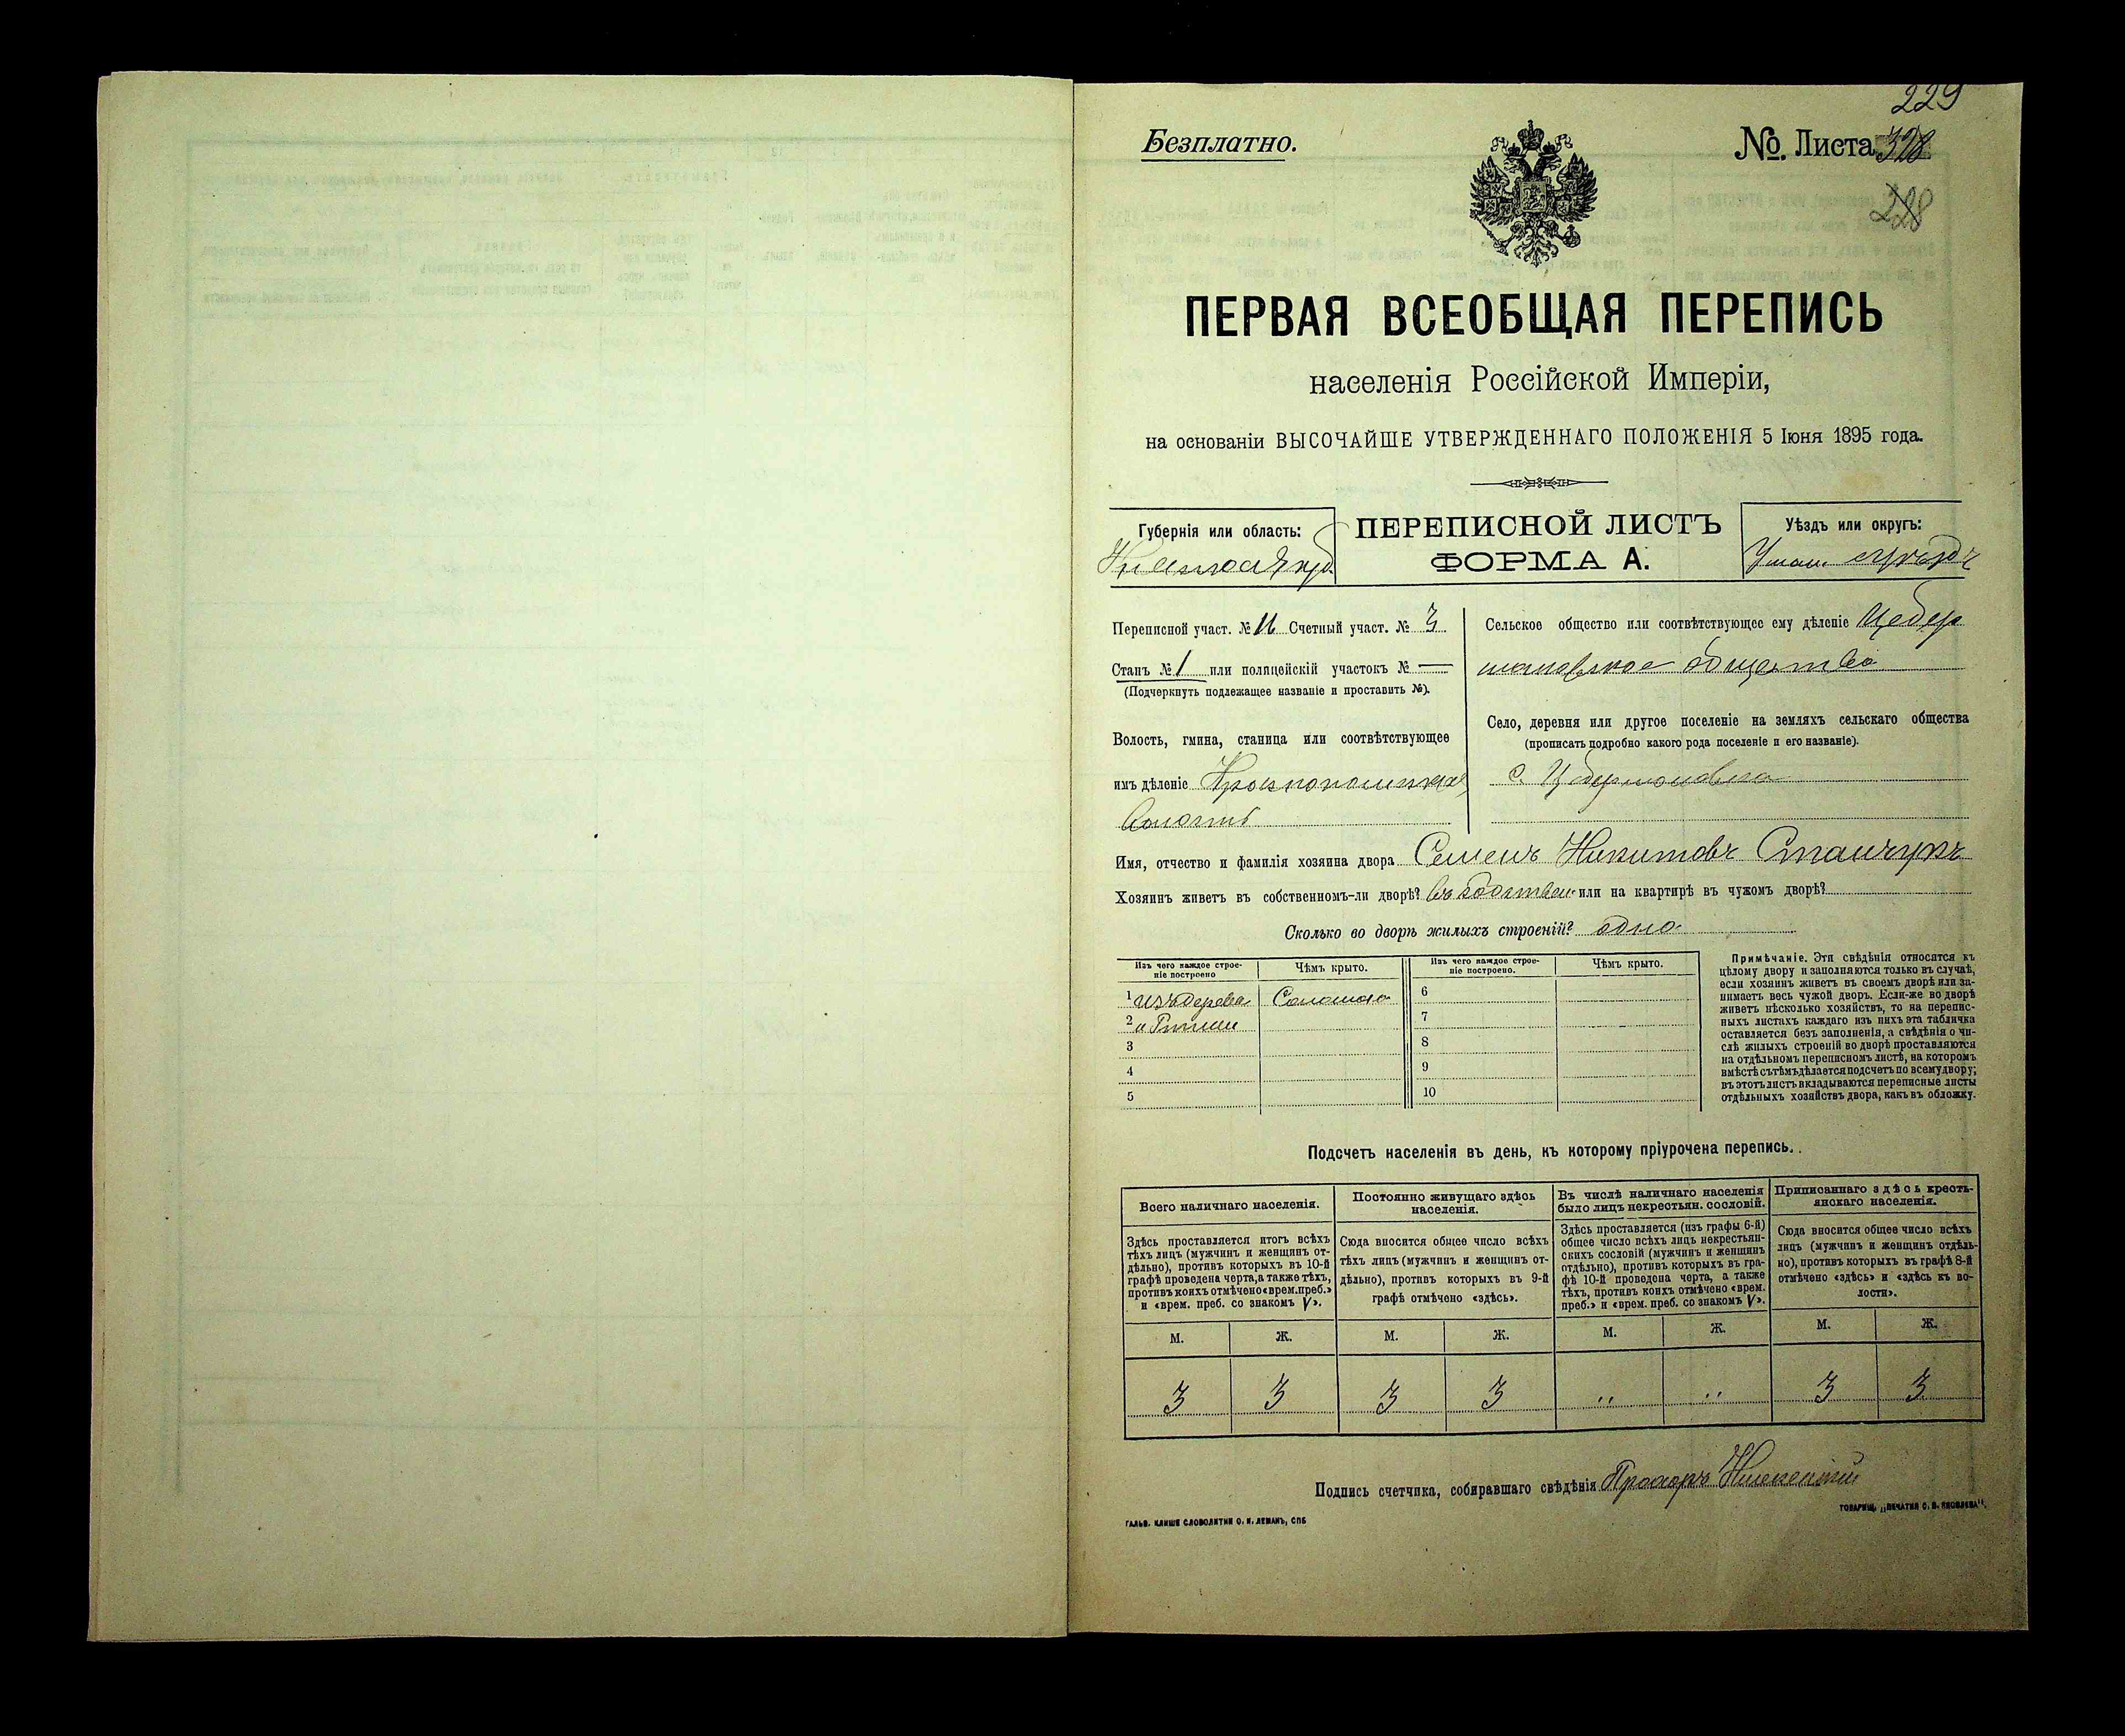 229
Безплатно.
№. Листа 328
228
ПЕРВАЯ ВСЕОБЩАЯ ПЕРЕПИСЬ
населенія Россійской Имперіи,
на основаніи ВЫСОЧАЙШЕ УТВЕРЖДЕННАГО ПОЛОЖЕНІЯ 5 Іюня 1895 года.
Губернія или область:
ПЕРЕПИСНОЙ ЛИСТЪ
ФОРМА А.
Уѣздъ или округъ:
Переписной участ. № 11 Счетный участ. № 3
Станъ № 1 или полицейскій участокъ № —
(Подчеркнуть подлежащее названіе и проставить №).
Волость, гмина, станица или соотвѣтствующее
имъ дѣленіе Краснопольская
волость
Сельское общество или соотвѣтствующее ему дѣленіе Цебер
мановское общество
Село, деревня или другое поселеніе на земляхъ сельскаго общества
(прописать подробно какого рода поселеніе и его названіе).
с. Цебермановка
Имя, отчество и фамилія хозяина двора Семенъ Никитовъ Станчукъ
Хозяинъ живетъ въ собственномъ-ли дворѣ? въ собствен. или на квартирѣ въ чужомъ дворѣ?
Сколько во дворѣ жилыхъ строеній? одно
Изъ чего каждое строе-
ніе построено
Чѣмъ крыто.
Изъ чего каждое строе-
ніе построено.
Чѣмъ крыто.
1 изъ дерева Соломою
2 и глины
3
4
5
6
7
8
9
10
Примѣчаніе. Эти свѣдѣнія относятся къ
цѣлому двору и заполняются только въ случаѣ,
если хозяинъ живетъ въ своемъ дворѣ или за-
нимаетъ весь чужой дворъ. Если-же во дворѣ
живетъ нѣсколько хозяйствъ, то на перепис-
ныхъ листахъ каждаго изъ нихъ эта табличка
оставляется безъ заполненія, а свѣдѣнія о чи-
слѣ жилыхъ строеній во дворѣ проставляются
на отдѣльномъ переписномъ листѣ, на которомъ
вмѣстѣ съ тѣмъ дѣлается подсчетъ по всему двору;
въ этотъ листъ вкладываются переписные листы
отдѣльныхъ хозяйствъ двора, какъ въ обложку.
Подсчетъ населенія въ день, къ которому пріурочена перепись.
Всего наличнаго населенія.
Здѣсь проставляется итогъ всѣхъ
тѣхъ лицъ (мужчинъ и женщинъ от-
дѣльно), противъ которыхъ въ 10-й
графѣ проведена черта, а также тѣхъ,
противъ коихъ отмѣчено «врем. преб.»
и «врем. преб. со знакомъ V».
Постоянно живущаго здѣсь
населенія.
Сюда вносится общее число всѣхъ
тѣхъ лицъ (мужчинъ и женщинъ от-
дѣльно), противъ которыхъ въ 9-й
графѣ отмѣчено «здѣсь».
Въ числѣ наличнаго населенія
было лицъ некрестьян. сословій.
Здѣсь проставляется (изъ графы 6-й)
общее число всѣхъ лицъ некрестьян-
скихъ сословій (мужчинъ и женщинъ
отдѣльно), противъ которыхъ въ гра-
фѣ 10-й проведена черта, а также
тѣхъ, противъ коихъ отмѣчено «врем.
преб.» и «врем. преб. со знакомъ V».
Приписаннаго здѣсь кресть-
янскаго населенія.
Сюда вносится общее число всѣхъ
лицъ (мужчинъ и женщинъ отдѣль-
но), противъ которыхъ въ графѣ 8-й
отмѣчено «здѣсь» и «здѣсь къ во-
лости».
М. Ж. М. Ж. М. Ж. М. Ж.
3 3 3 3 „ „ 3 3
Подпись счетчика, собиравшаго свѣдѣнія Прохоръ
ГАЛЬВ. КЛИШЕ СЛОВОЛИТНИ О. И. ЛЕМАНЪ, СПБ
ТОВАРИЩ. „ПЕЧАТНЯ С. П. ЯКОВЛЕВА“.